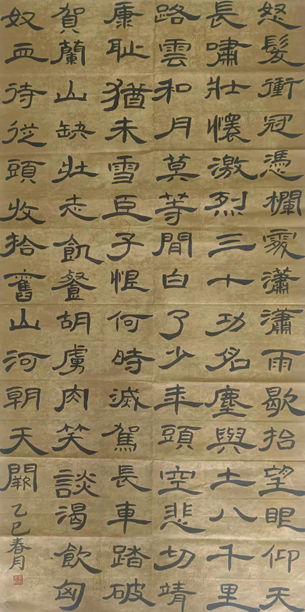 怒髮衝冠憑欄處瀟瀟雨歇抬望眼仰天
長嘯壯懷激烈三十功名塵與土八千里
路雲和月莫等閒白了少年頭空悲切靖
康恥猶未雪臣子恨何時滅駕長車踏破
賀蘭山缺壯志飢餐胡虜肉笑談渴飲匈
奴血待從頭收拾舊山河朝天闕 乙巳春月